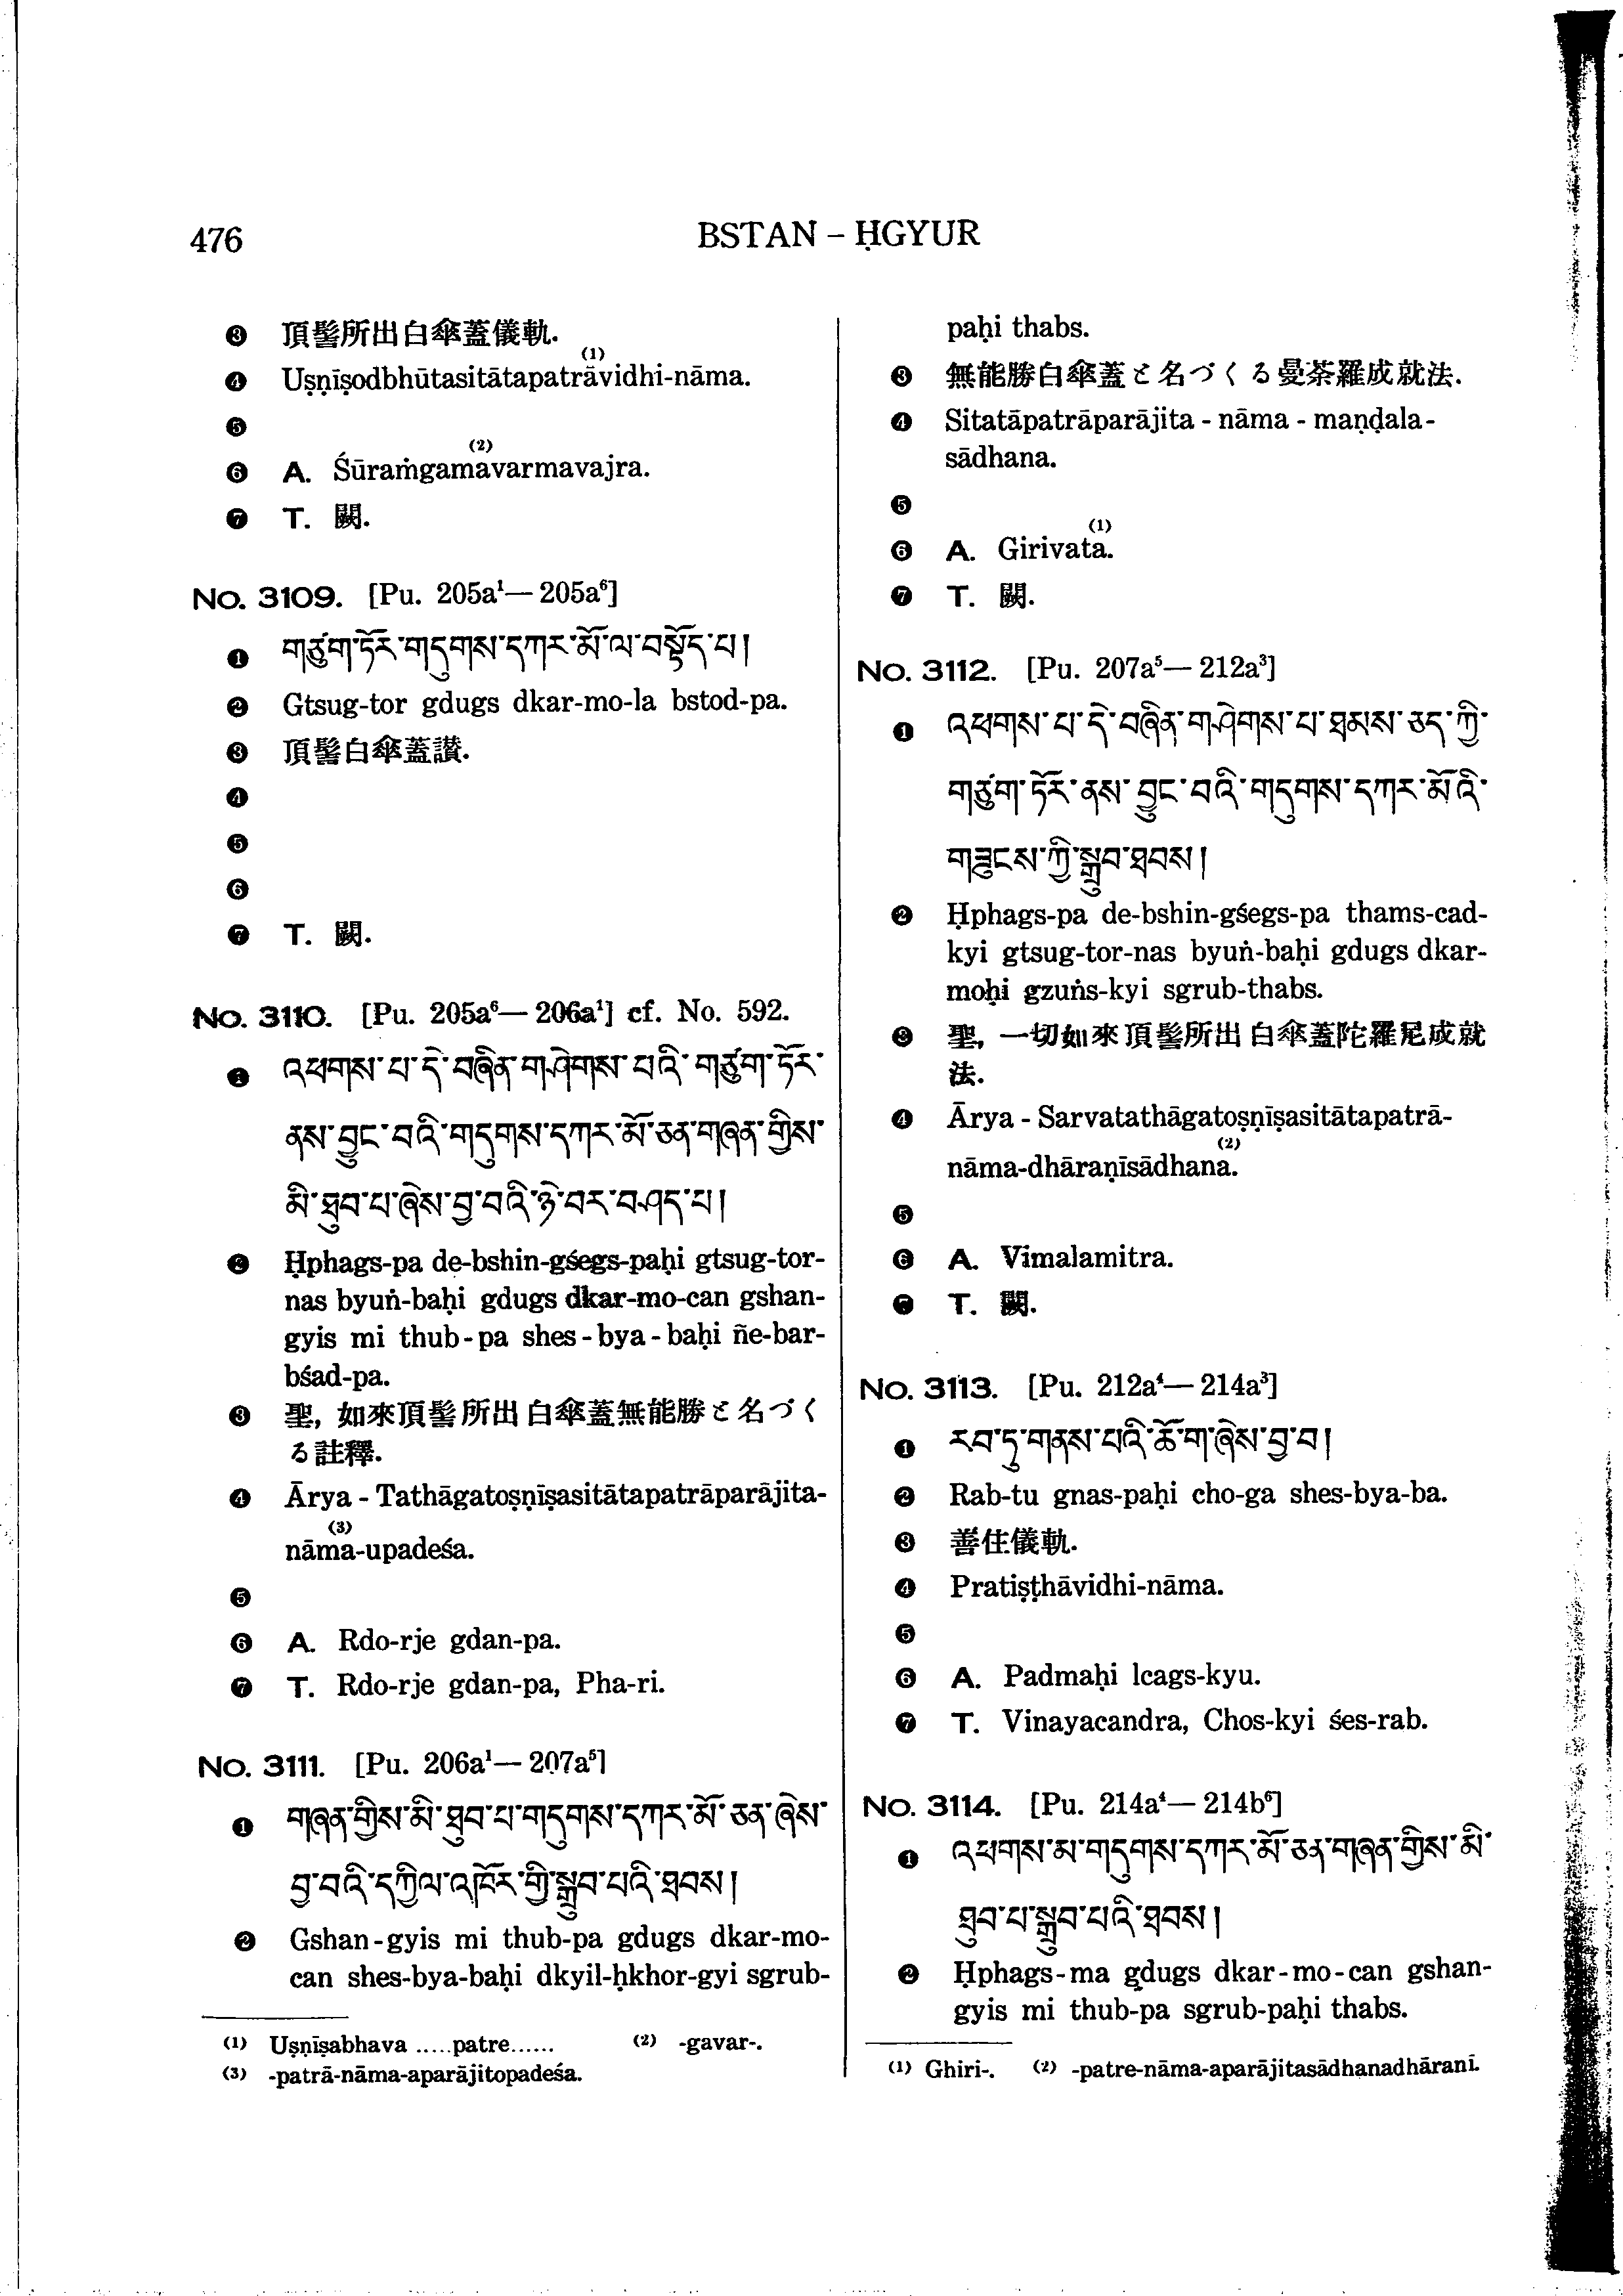 476
BSTAN – ḤGYUR
❸ 頂髻所出白傘蓋儀軌.
❹ Uṣṇīṣodbhūtasitātapatrāvidhi-nāma.(1)
❺
❻ A. Śūraṁgamavarmavajra.(2)
❼ T. 闕.
No. 3109. [Pu. 205a¹—205a⁶]
❶ གཙུག་ཏོར་གདུགས་དཀར་མོ་ལ་བསྟོད་པ།
❷ Gtsug-tor gdugs dkar-mo-la bstod-pa.
❸ 頂髻白傘蓋讃.
❹
❺
❻
❼ T. 闕.
No. 3110. [Pu. 205a⁶—206a¹] cf. No. 592.
❶ འཕགས་པ་དེ་བཞིན་གཤེགས་པའི་གཙུག་ཏོར་
ནས་བྱུང་བའི་གདུགས་དཀར་མོ་ཅན་གཞན་གྱིས་
མི་ཐུབ་པ་ཞེས་བྱ་བའི་ཉེ་བར་བཤད་པ།
❷ Ḥphags-pa de-bshin-gśegs-paḥi gtsug-tor-
nas byuṅ-baḥi gdugs dkar-mo-can gshan-
gyis mi thub-pa shes-bya-baḥi ñe-bar-
bśad-pa.
❸ 聖, 如來頂髻所出白傘蓋無能勝と名づく
る註釋.
❹ Ārya-Tathāgatoṣṇīṣasitātapatrāparājita-
nāma-upadeśa.(3)
❺
❻ A. Rdo-rje gdan-pa.
❼ T. Rdo-rje gdan-pa, Pha-ri.
No. 3111. [Pu. 206a¹—207a⁵]
❶ གཞན་གྱིས་མི་ཐུབ་པ་གདུགས་དཀར་མོ་ཅན་ཞེས་
བྱ་བའི་དཀྱིལ་འཁོར་གྱི་སྒྲུབ་པའི་ཐབས།
❷ Gshan-gyis mi thub-pa gdugs dkar-mo-
can shes-bya-baḥi dkyil-ḥkhor-gyi sgrub-
(1) Uṣṇīṣabhava .....patre...... (2) -gavar-.
(3) -patrā-nāma-aparājitopadeśa.
paḥi thabs.
❸ 無能勝白傘蓋と名づくる曼荼羅成就法.
❹ Sitatāpatrāparājita-nāma-maṇḍala-
sādhana.
❺
❻ A. Girivata.(1)
❼ T. 闕.
No. 3112. [Pu. 207a⁵—212a³]
❶ འཕགས་པ་དེ་བཞིན་གཤེགས་པ་ཐམས་ཅད་ཀྱི་
གཙུག་ཏོར་ནས་བྱུང་བའི་གདུགས་དཀར་མོའི་
གཟུངས་ཀྱི་སྒྲུབ་ཐབས།
❷ Ḥphags-pa de-bshin-gśegs-pa thams-cad-
kyi gtsug-tor-nas byuṅ-baḥi gdugs dkar-
moḥi gzuṅs-kyi sgrub-thabs.
❸ 聖, 一切如來頂髻所出白傘蓋陀羅尼成就
法.
❹ Ārya-Sarvatathāgatoṣṇīṣasitātapatrā-
nāma-dhāraṇīsādhana.(2)
❺
❻ A. Vimalamitra.
❼ T. 闕.
No. 3113. [Pu. 212a⁴—214a³]
❶ རབ་ཏུ་གནས་པའི་ཆོ་ག་ཞེས་བྱ་བ།
❷ Rab-tu gnas-paḥi cho-ga shes-bya-ba.
❸ 善住儀軌.
❹ Pratiṣṭhāvidhi-nāma.
❺
❻ A. Padmaḥi lcags-kyu.
❼ T. Vinayacandra, Chos-kyi śes-rab.
No. 3114. [Pu. 214a⁴—214b⁶]
❶ འཕགས་མ་གདུགས་དཀར་མོ་ཅན་གཞན་གྱིས་མི་
ཐུབ་པ་སྒྲུབ་པའི་ཐབས།
❷ Ḥphags-ma gdugs dkar-mo-can gshan-
gyis mi thub-pa sgrub-paḥi thabs.
(1) Ghiri-. (2) -patre-nāma-aparājitasādhanadhāranī.